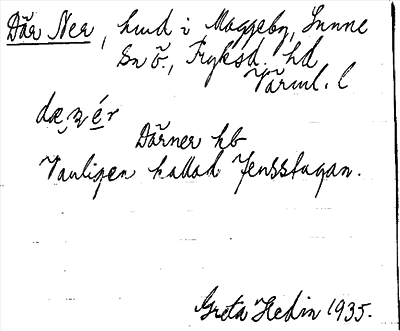 Där Ner, hmd i Maggeby, Sunne
Sn Ö., Fryksd. hd
Värml. l
dæ̣ṇér
Därner hb
Vanligen kallad Jensstugan.
Greta Hedin 1935.